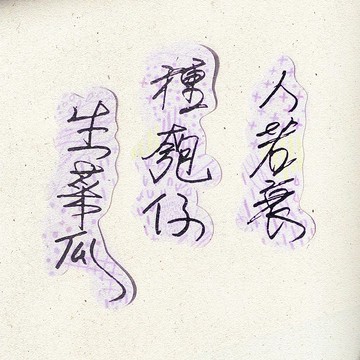 人若衰
種匏仔
生菜瓜